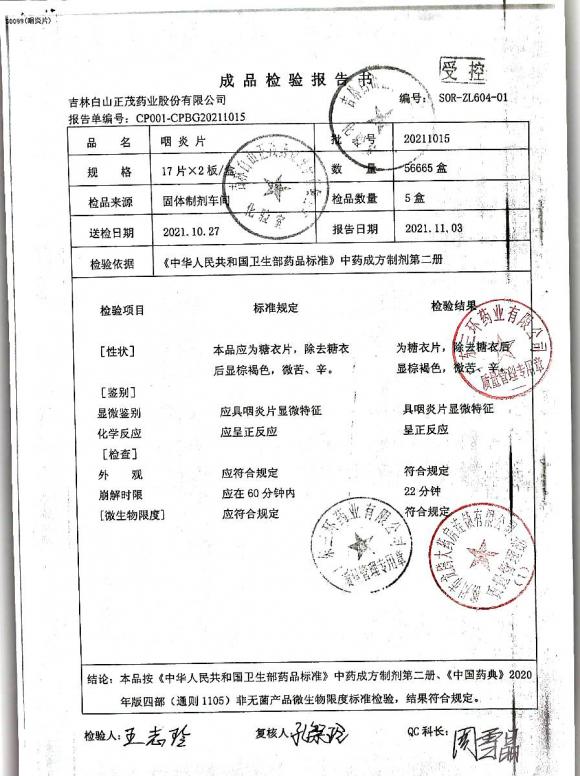 S0099(咽炎片)
受控
成品检验报告书
吉林白山正茂药业股份有限公司
编号: SOR-ZL604-01
报告单编号: CP001-CPBG20211015
品名 咽炎片 批号 20211015
规格 17片×2板/盒 数量 56665盒
检品来源 固体制剂车间 检品数量 5盒
送检日期 2021.10.27 报告日期 2021.11.03
检验依据 《中华人民共和国卫生部药品标准》中药成方制剂第二册
检验项目 标准规定 检验结果
[性状] 本品应为糖衣片，除去糖衣 为糖衣片，除去糖衣后
后显棕褐色，微苦、辛。 显棕褐色，微苦、辛。
[鉴别]
显微鉴别 应具咽炎片显微特征 具咽炎片显微特征
化学反应 应呈正反应 呈正反应
[检查]
外观 应符合规定 符合规定
崩解时限 应在60分钟内 22分钟
[微生物限度] 应符合规定 符合规定
结论: 本品按《中华人民共和国卫生部药品标准》中药成方制剂第二册、《中国药典》2020
年版四部（通则1105）非无菌产品微生物限度标准检验，结果符合规定。
检验人: 王志玲 复核人 QC科长: 周雪晶